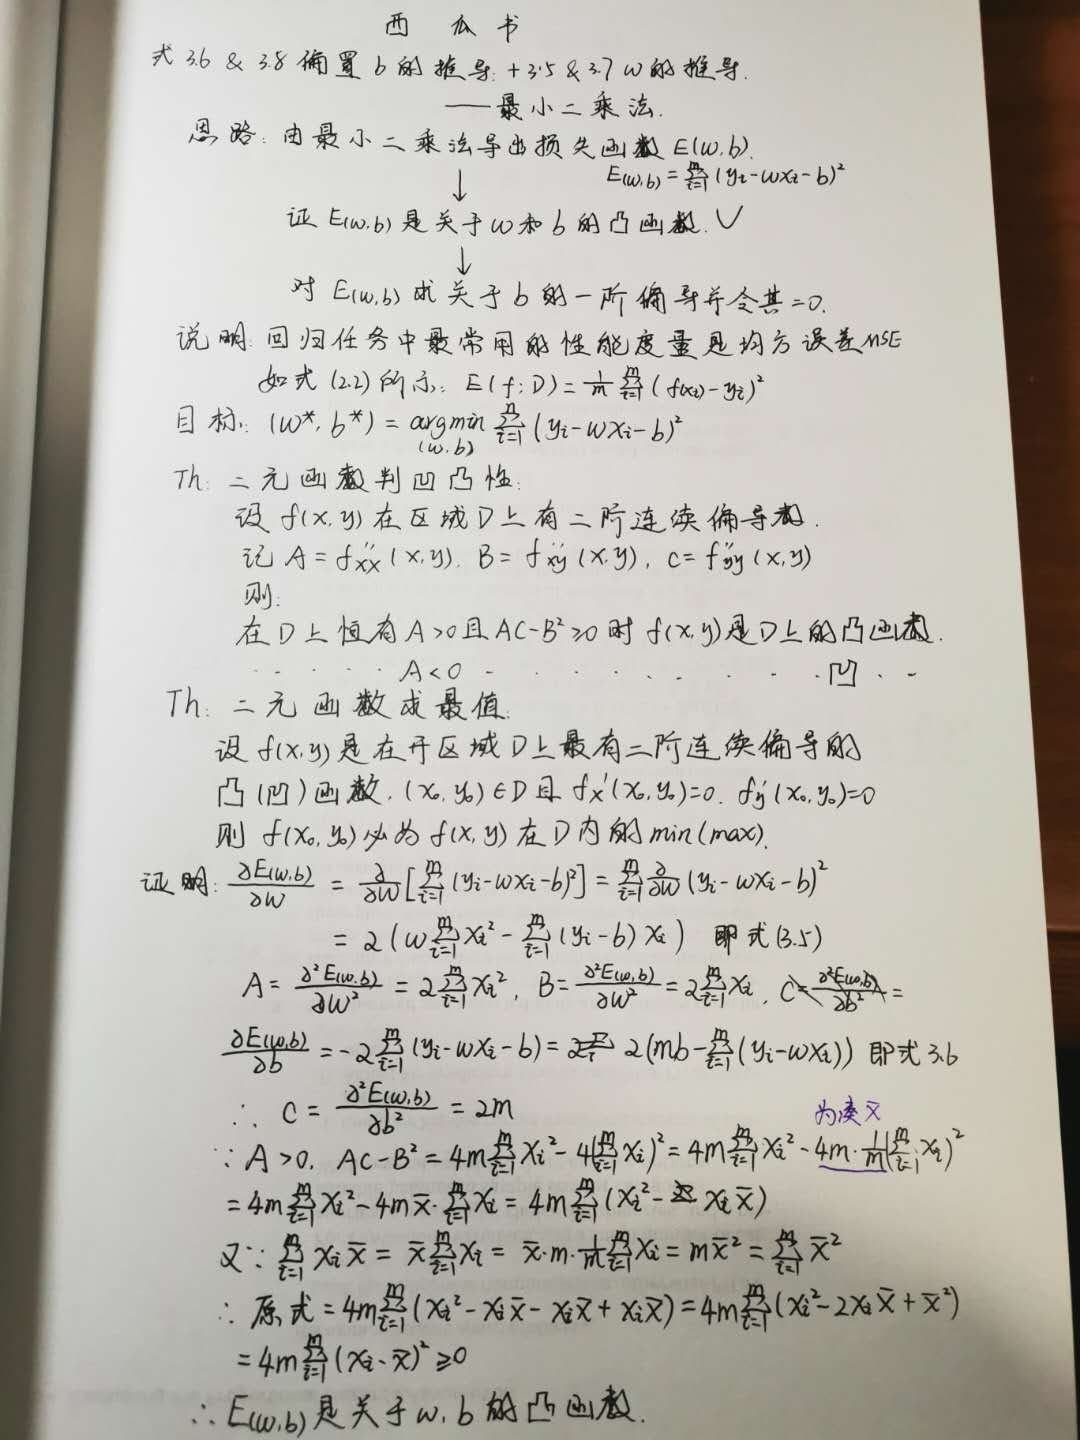 西瓜书
式 3.6 & 3.8 偏置 b 的推导. + 3.5 & 3.7 w 的推导.
——最小二乘法.
思路: 由最小二乘法导出损失函数 E(w,b).
E(w,b) = ∑_{i=1}^{m} (yi-wxi-b)²
↓
证 E(w,b) 是关于 w 和 b 的凸函数. ✓
↓
对 E(w,b) 求关于 b 的一阶偏导并令其=0.
说明: 回归任务中最常用的性能度量是均方误差 MSE
如式 (2.2) 所示: E(f;D) = 1/m ∑_{i=1}^{m} (f(xi)-yi)²
目标: (w*, b*) = argmin_{(w.b)} ∑_{i=1}^{n} (yi-wxi-b)²
Th: 二元函数判凹凸性:
设 f(x,y) 在区域 D 上有二阶连续偏导数.
记 A = f''xx (x,y). B = f''xy (x,y), C = f''yy (x,y)
则:
在 D 上恒有 A>0 且 AC-B²≥0 时 f(x,y) 是 D 上的凸函数.
· · · · A<0 · · · · · · · · · 凹 · ·
Th: 二元函数求最值.
设 f(x,y) 是在开区域 D 上最有二阶连续偏导的
凸(凹)函数. (x₀, y₀) ∈ D 且 fx'(x₀,y₀)=0. fy'(x₀,y₀)=0
则 f(x₀,y₀) 必为 f(x,y) 在 D 内的 min (max).
证明: ∂E(w,b)/∂w = ∂/∂w [∑_{i=1}^{m} (yi-wxi-b)²] = ∑_{i=1}^{m} ∂/∂w (yi-wxi-b)²
= 2 (w∑_{i=1}^{m} xi² - ∑_{i=1}^{m} (yi-b) xi) 即式 (3.5)
A = ∂²E(w.b)/∂w² = 2∑_{i=1}^{m} xi², B = ∂²E(w,b)/∂w² = 2∑_{i=1}^{m} xi. C = ∂²E(w,b)/∂b² =
∂E(w,b)/∂b = -2∑_{i=1}^{m} (yi-wxi-b) = 2(mb-∑_{i=1}^{m} (yi-wxi)) 即式 3.6
∴ C = ∂²E(w,b)/∂b² = 2m
为凑 x̄
∵ A>0. AC-B² = 4m∑_{i=1}^{m} xi² - 4(∑_{i=1}^{m} xi)² = 4m∑_{i=1}^{m} xi² - 4m·1/m(∑_{i=1}^{m} xi)²
= 4m∑_{i=1}^{m} xi² - 4m x̄·∑_{i=1}^{m} xi = 4m∑_{i=1}^{m} (xi² - xi x̄)
又∵ ∑_{i=1}^{m} xi x̄ = x̄∑_{i=1}^{m} xi = x̄·m·1/m∑_{i=1}^{m} xi = m x̄² = ∑_{i=1}^{m} x̄²
∴ 原式 = 4m∑_{i=1}^{m} (xi² - xi x̄ - xi x̄ + xi x̄) = 4m∑_{i=1}^{m} (xi² - 2xi x̄ + x̄²)
= 4m∑_{i=1}^{m} (xi - x̄)² ≥0
∴ E(w,b) 是关于 w, b 的凸函数.